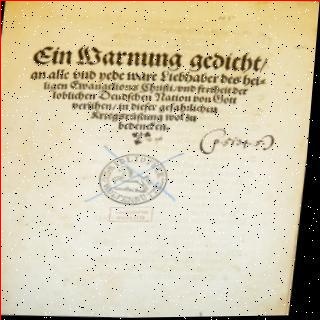 Ein Warnung gedicht/
an alle vnd yede ware Liebhaber des hei-
ligen Ewangelions Christi/ vnd freiheit der
loblichen Deudschen Nation von Gott
verlihen/ in dieser gefahrlichen
Kriegsrüstung wol zu
bedencken.